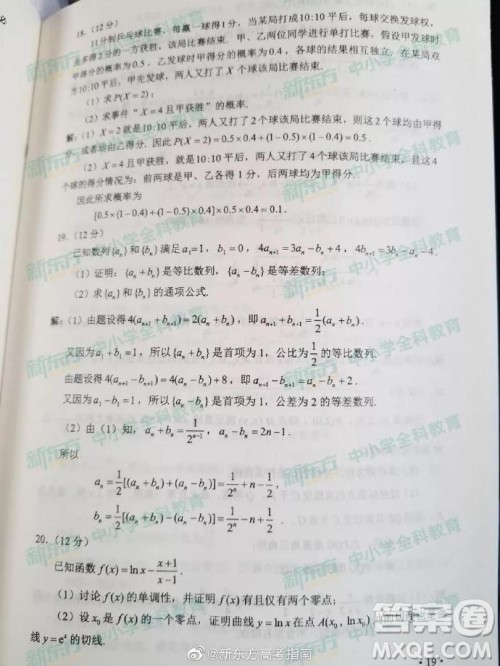 18.（12分）
11分制乒乓球比赛，每赢一球得1分，当某局打成10:10平后，每球交换发球权，
先多得2分的一方获胜，该局比赛结束．甲、乙两位同学进行单打比赛，假设甲发球时
甲得分的概率为0.5，乙发球时甲得分的概率为0.4，各球的结果相互独立．在某局双
方10:10平后，甲先发球，两人又打了X个球该局比赛结束．
（1）求P(X=2)；
（2）求事件“X=4且甲获胜”的概率．
解：（1）X=2就是10:10平后，两人又打了2个球该局比赛结束，则这2个球均由甲得
分，或者均由乙得分．因此P(X=2)=0.5×0.4+(1-0.5)×(1-0.4)=0.5．
（2）X=4且甲获胜，就是10:10平后，两人又打了4个球该局比赛结束，且这4
个球的得分情况为：前两球是甲、乙各得1分，后两球均为甲得分．
因此所求概率为
[0.5×(1-0.4)+(1-0.5)×0.4]×0.5×0.4=0.1．
19.（12分）
已知数列{aₙ}和{bₙ}满足a₁=1，b₁=0，4aₙ₊₁=3aₙ-bₙ+4，4bₙ₊₁=3bₙ-aₙ-4．
（1）证明：{aₙ+bₙ}是等比数列，{aₙ-bₙ}是等差数列；
（2）求{aₙ}和{bₙ}的通项公式．
解：（1）由题设得4(aₙ₊₁+bₙ₊₁)=2(aₙ+bₙ)，即aₙ₊₁+bₙ₊₁=1/2(aₙ+bₙ)．
又因为a₁+b₁=1，所以{aₙ+bₙ}是首项为1，公比为1/2的等比数列．
由题设得4(aₙ₊₁-bₙ₊₁)=4(aₙ-bₙ)+8，即aₙ₊₁-bₙ₊₁=aₙ-bₙ+2．
又因为a₁-b₁=1，所以{aₙ-bₙ}是首项为1，公差为2的等差数列．
（2）由（1）知，aₙ+bₙ=1/2ⁿ⁻¹，aₙ-bₙ=2n-1．
所以
aₙ=1/2[(aₙ+bₙ)+(aₙ-bₙ)]=1/2ⁿ+n-1/2，
bₙ=1/2[(aₙ+bₙ)-(aₙ-bₙ)]=1/2ⁿ-n+1/2．
20.（12分）
已知函数f(x)=lnx-(x+1)/(x-1)．
（1）讨论f(x)的单调性，并证明f(x)有且仅有两个零点；
（2）设x₀是f(x)的一个零点，证明曲线y=lnx在点A(x₀, lnx₀)
线y=eˣ的切线．
·19·
新东方 中小学全科教育
@新东方高考指南
答案圈